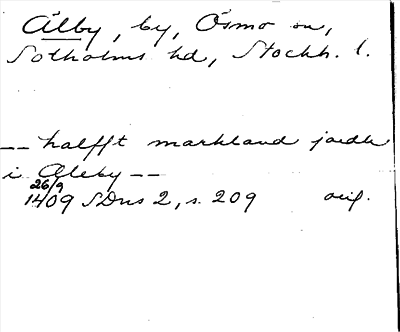 Älby, by, Ösmo sn,
Sotholms hd, Stockh. l.
-- halfft markland jordh
i Aleby --
26/9
1409 SDns 2, s. 209 orig.